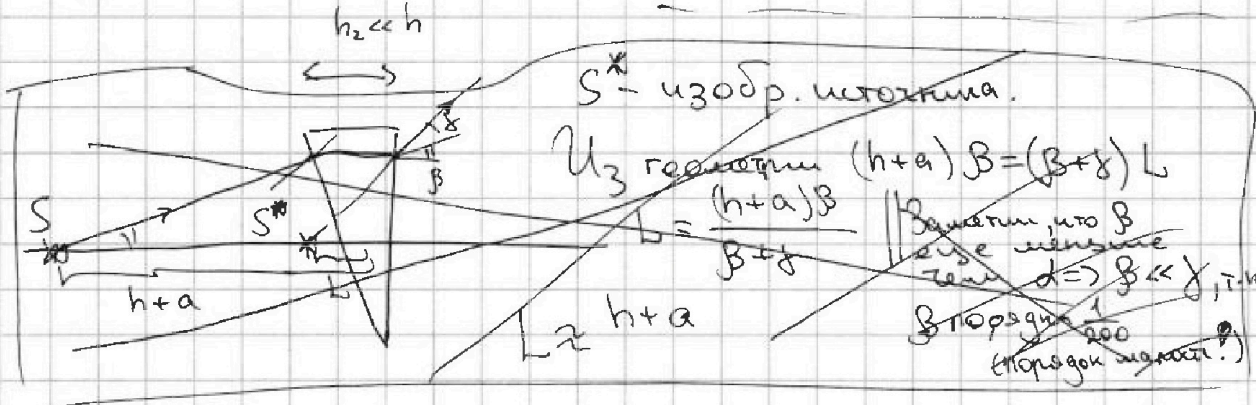 h₂ << h
S* - изобр. источника.
Из геометрии (h+a) β = (β+γ) L
L = (h+a)β / (β+γ)
Заметим, что β
еще меньше
чем α => β << γ, т.к
β порядк. 1/200
(порядок малый?)
L ≈ h+a
S
S*
h+a
L
γ
β